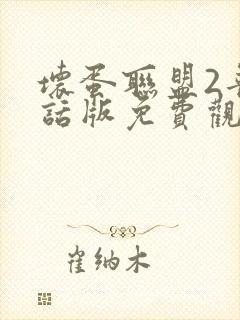 壞蛋聯盟2
話版免費觀
崔納木